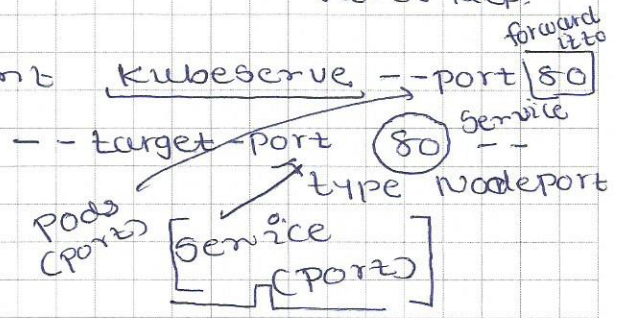 forward
it to
nt kubeserve --port 80
--target-port 80 service
-- type Nodeport
pods
(port)
[service
(port)]